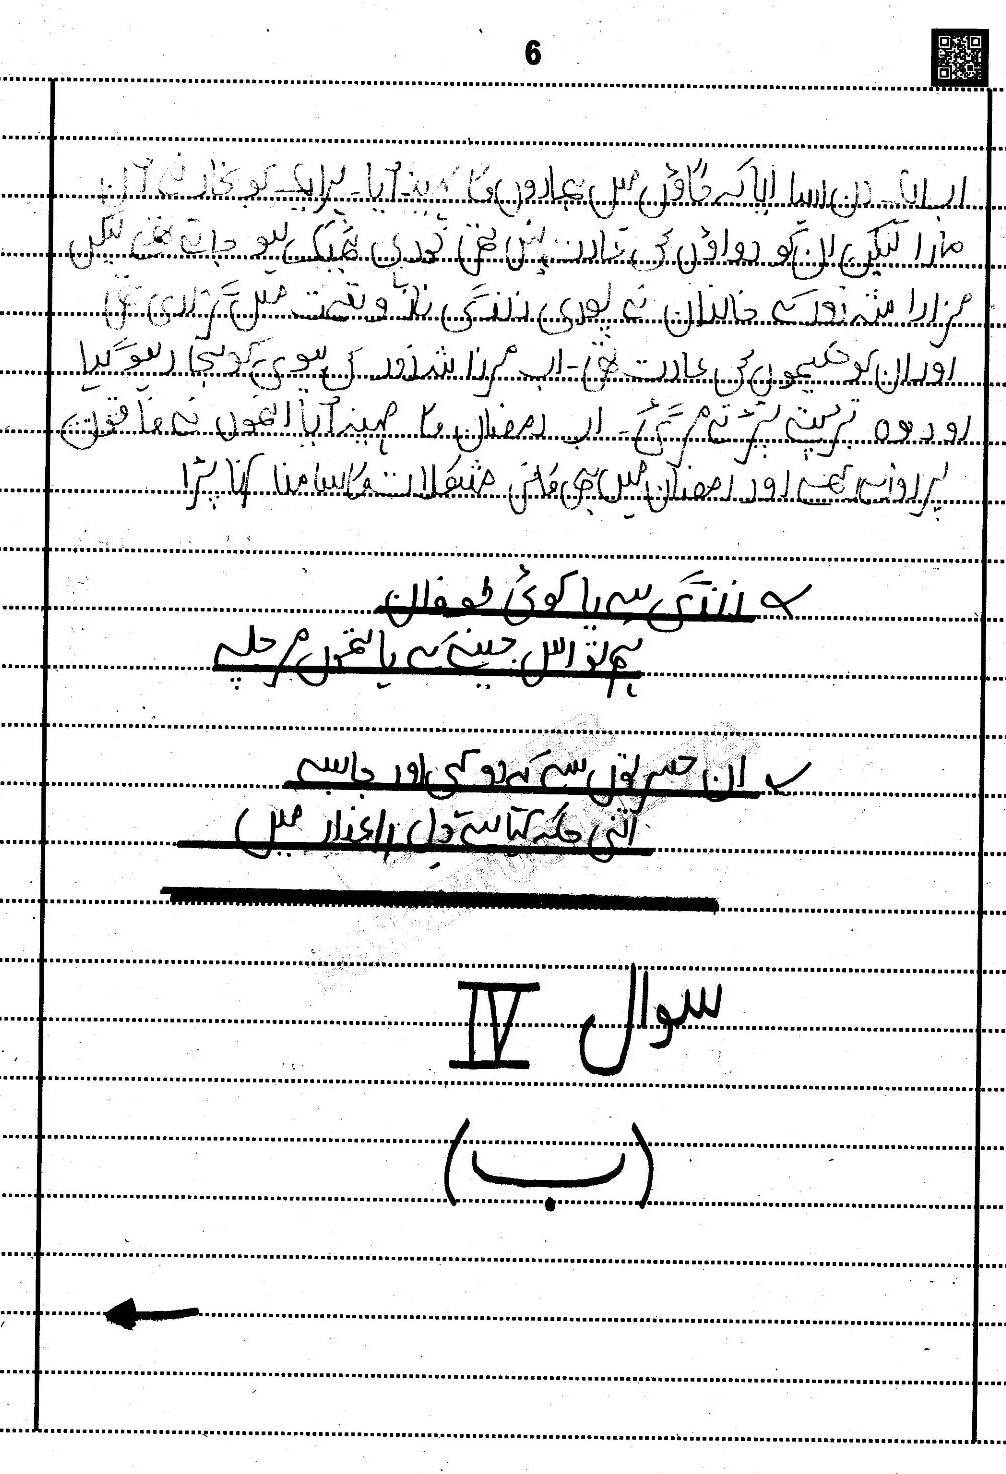 6
اب ایک دن ایسا آیا کہ گاؤں میں بھادوں کا مہینہ آیا۔ ہر ایک کو بخار نے آن
مارا لیکن ان کو دواؤں کی عادت نہیں تھی خود ہی ٹھیک ہو جاتے تھے لیکن
مرزا شہ زور کے خاندان نے پوری زندگی ناز و نعمت میں گزاری تھی
اور ان کو حکیموں کی عادت تھی۔ اب مرزا شہ زور کی بیوی کو بخار ہو گیا
اور وہ تڑپتے تڑپتے مر گئی۔ اب رمضان کا مہینہ آیا انھوں نے فاقوں
پر روزے رکھے اور رمضان میں بھی کافی مشکلات کا سامنا کرنا پڑا
زندگی ہے یا کوئی طوفان
ہم تو اس جینے کے ہاتھوں مر چلے
ان حسرتوں سے کہہ دو کہیں اور جا بسے
اتنی جگہ کہاں ہے دل داغدار میں
سوال IV
(ب)